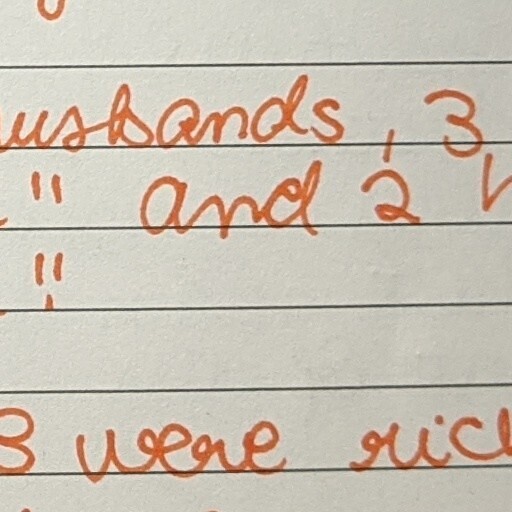 usbands, 3
" and 2
"
3 were rich